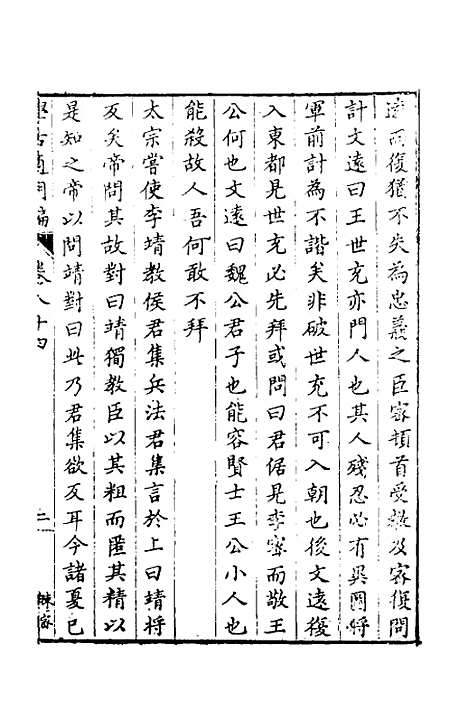 遠而復猶不失為忠義之臣密頓首受教及密復問
計文遠曰王世充亦門人也其人殘忍必有異圖將
軍前計為不諧矣非破世充不可入朝也後文遠復
入東都見世充必先拜或問曰君倨見李密而敬王
公何也文遠曰魏公君子也能容賢士王公小人也
能殺故人吾何敢不拜
太宗嘗使李靖教侯君集兵法君集言於上曰靖將
反矣帝問其故對曰靖獨教臣以其粗而匿其精以
是知之帝以問靖對曰此乃君集欲反耳今諸夏已
卷八十四
二